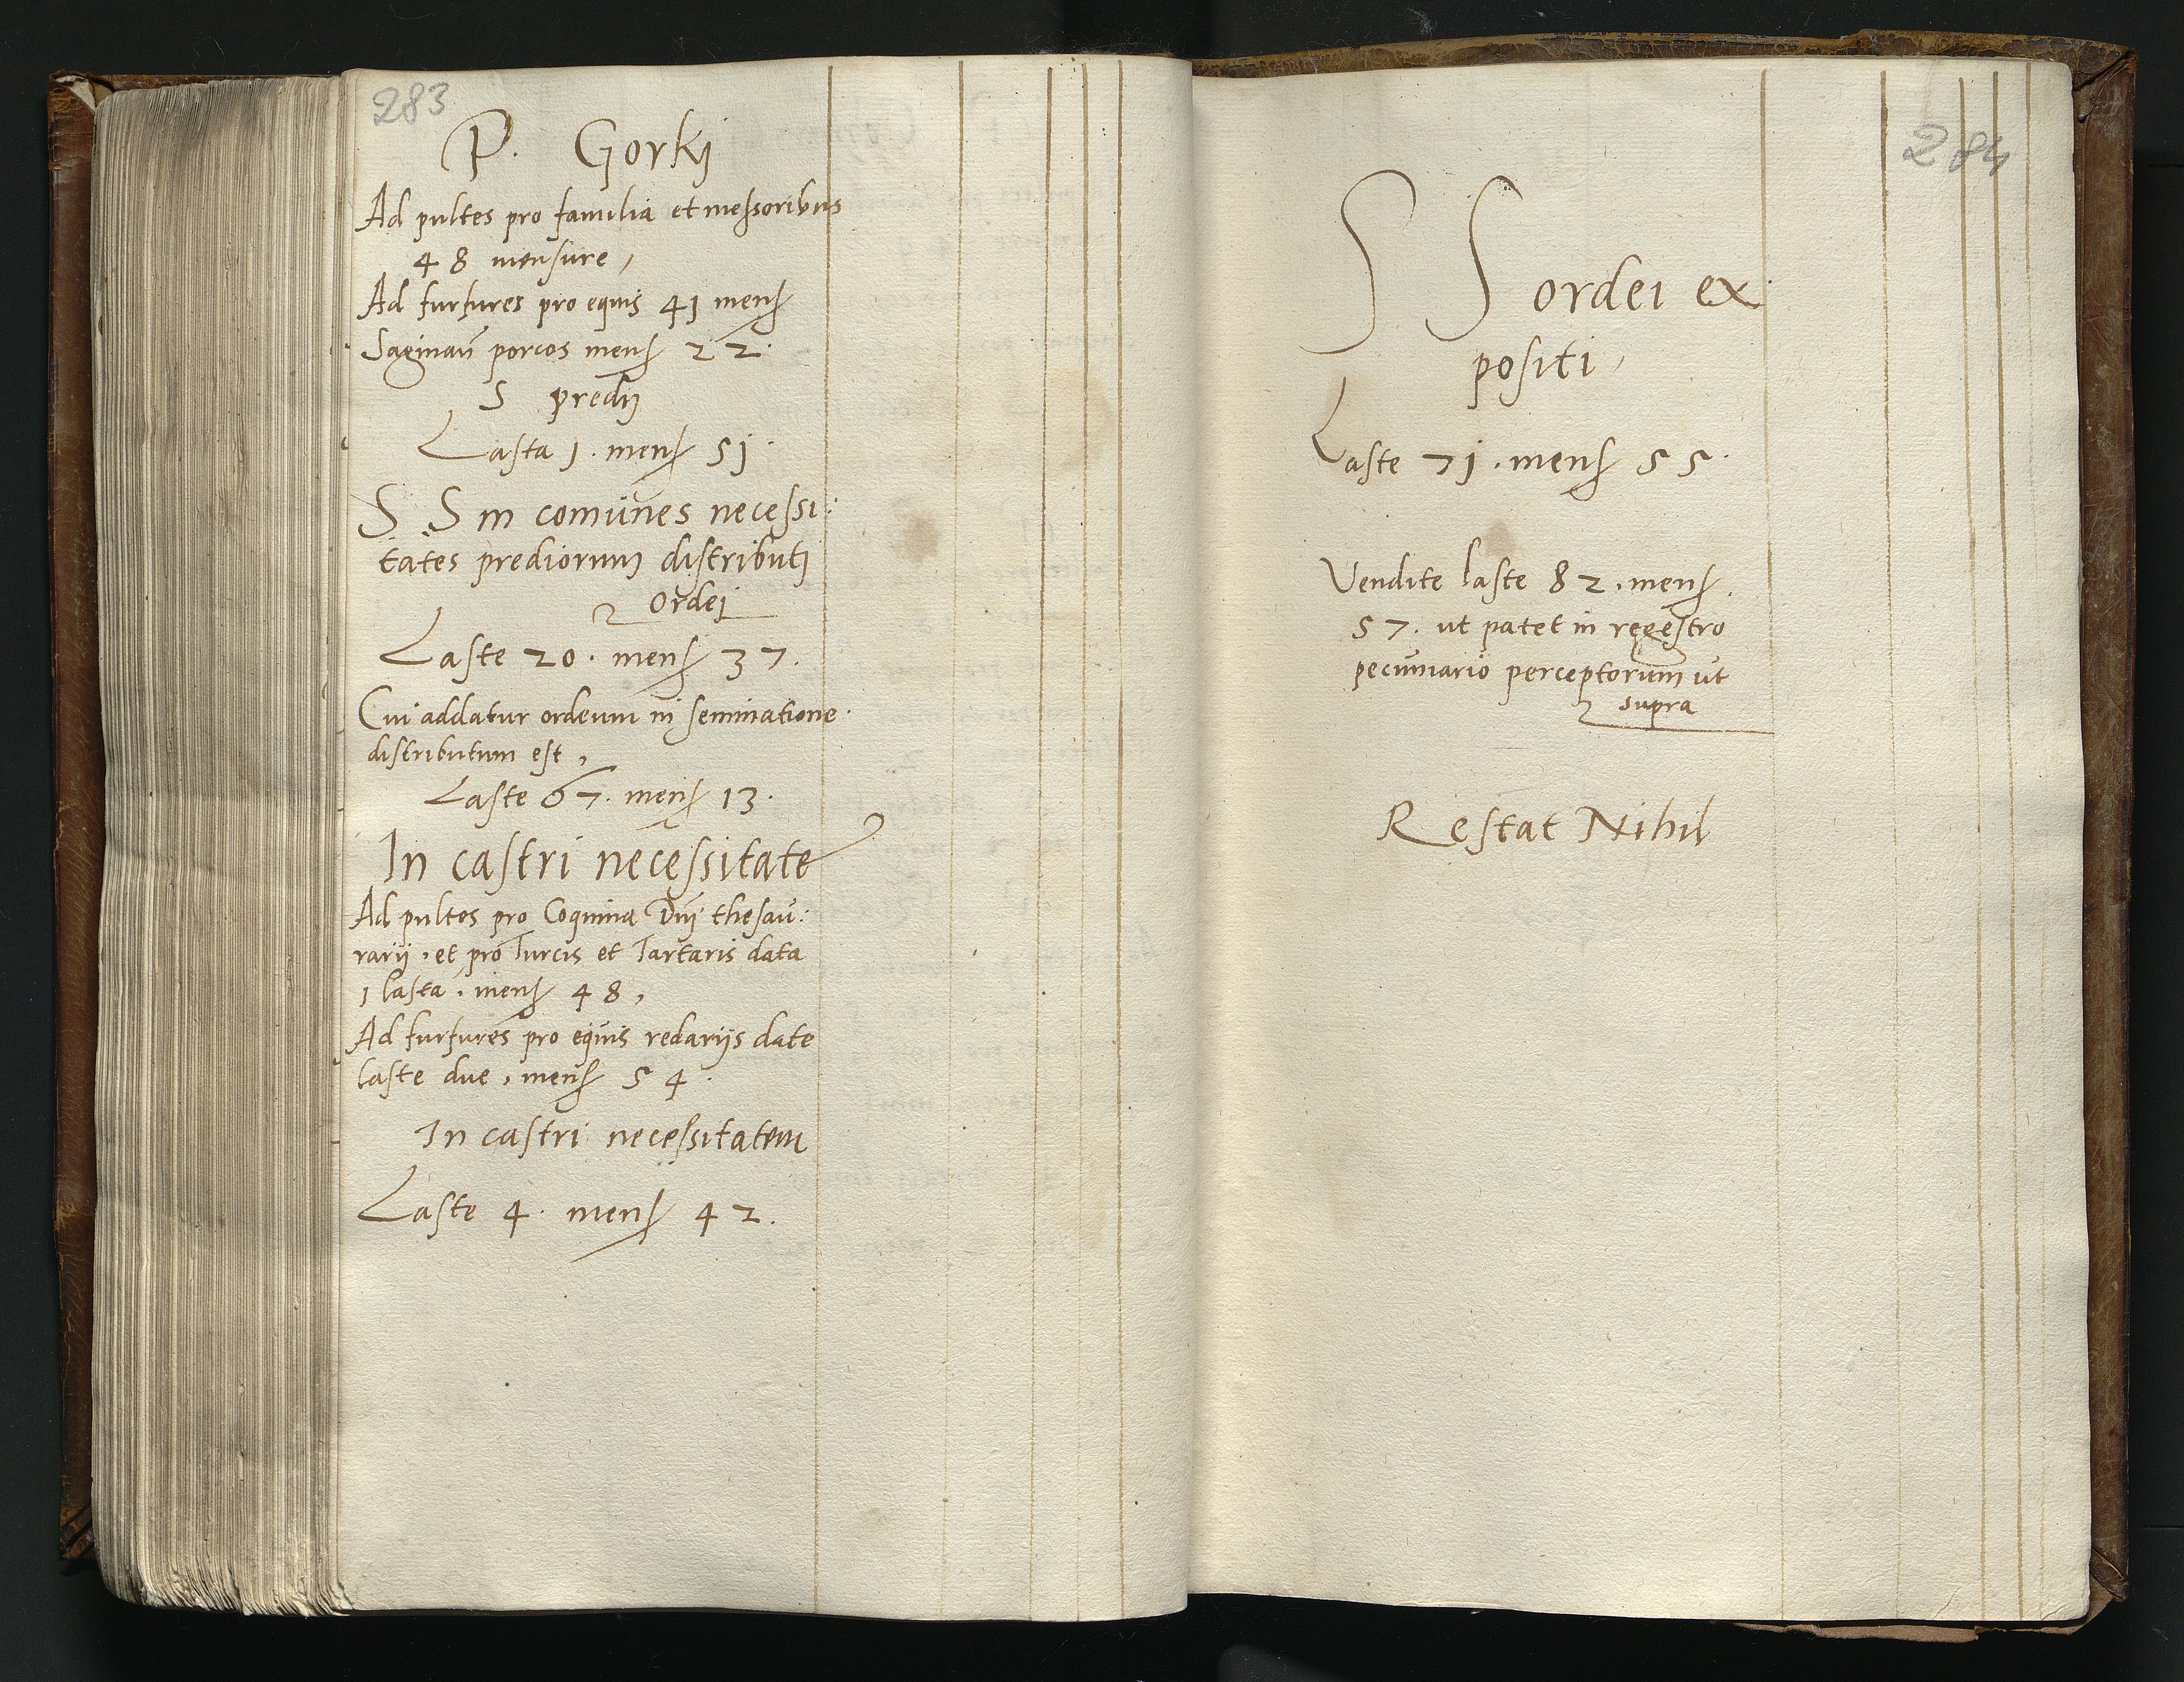 283
P. Gorkj
Ad pultes pro familia et messoribus
48 mensure,
Ad furfures pro equis 41 mens
Saginan̄ porcos mens 22.
S predij
Lasta 1. mens 51.
S S in comunes necessi:
tates prediorum distributj
ordej
Laste 20. mens 37.
Cui addatur ordeum in seminatione
distributum est,
Laste 67. mens 13.
In castri necessitate
Ad pultes pro Coquina Dn̄i thesau:
rarij. et pro Turcis et Tartaris data
1 lasta. mens 48,
Ad furfures pro equis redarijs date
laste due, mens 54.
In castri necessitatem
Laste 4. mens 42.
284
S S ordei ex
positi,
Laste 71. mens 55.
Vendite laste 82. mens.
57. ut patet in regestro
pecuniario perceptorum ut
supra
Restat Nihil